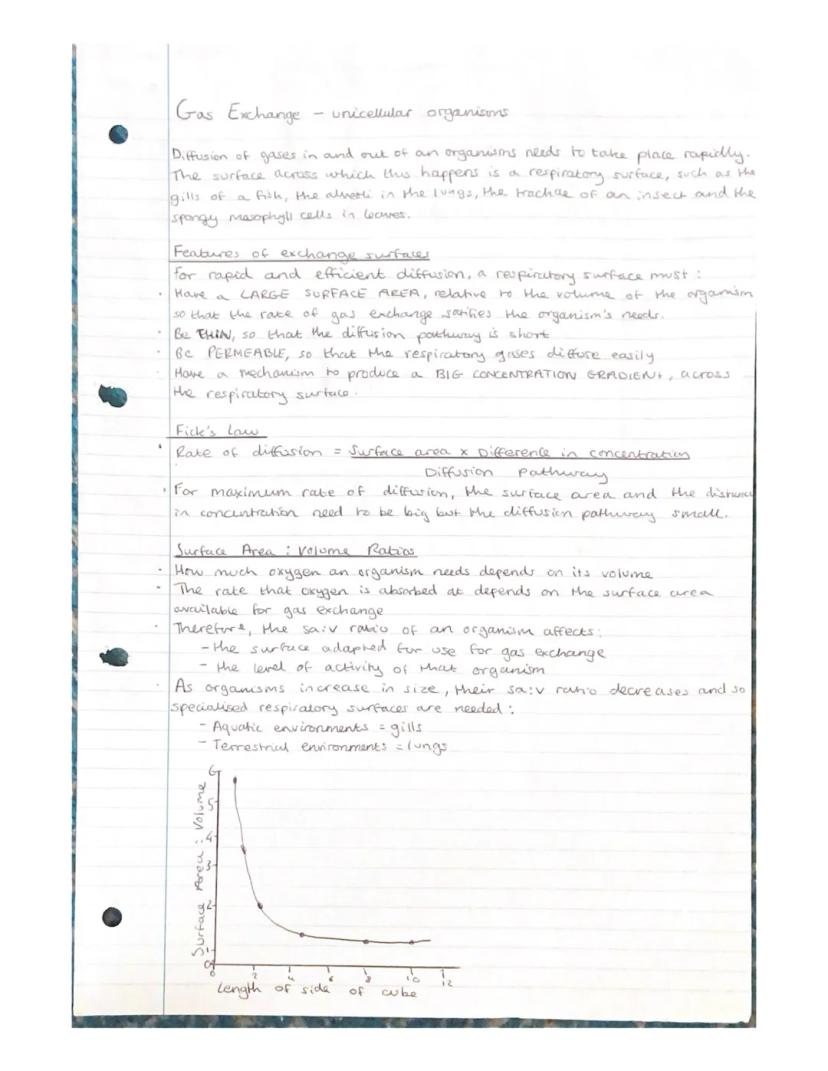 Gas Exchange - unicellular organisms
Diffusion of gases in and out of an organisms needs to take place rapidly.
The surface across which this happens is a respiratory surface, such as the
gills of a fish, the alveoli in the lungs, the trachae of an insect and the
spongy mesophyll cells in leaves.
Features of exchange surfaces
For rapid and efficient diffusion, a respiratory surface must:
· Have a LARGE SURFACE AREA, relative to the volume of the organism
so that the rate of gas exchange satifies the organism's needs.
· Be THIN, so that the diffusion pathway is short
· Be PERMEABLE, so that the respiratory gases diffuse easily
· Have a mechanism to produce a BIG CONCENTRATION GRADIENT, across
the respiratory surface.
Fick's Law
· Rate of diffusion = Surface area x Difference in concentration
Diffusion Pathway
· For maximum rate of diffusion, the surface area and the distance
in concentration need to be big but the diffusion pathway small.
Surface Area : Volume Ratios
· How much oxygen an organism needs depends on its volume
· The rate that oxygen is absorbed at depends on the surface area
available for gas exchange
· Therefore, the sa:v ratio of an organism affects:
- the surface adapted for use for gas exchange
- the level of activity of that organism
· As organisms increase in size, their sa:v ratio decreases and so
specialised respiratory surfaces are needed:
- Aquatic environments = gills
- Terrestrial environments = lungs
Surface Area : Volume
6
5
4
3
2
1
0
0 2 4 6 8 10 12
Length of side of cube